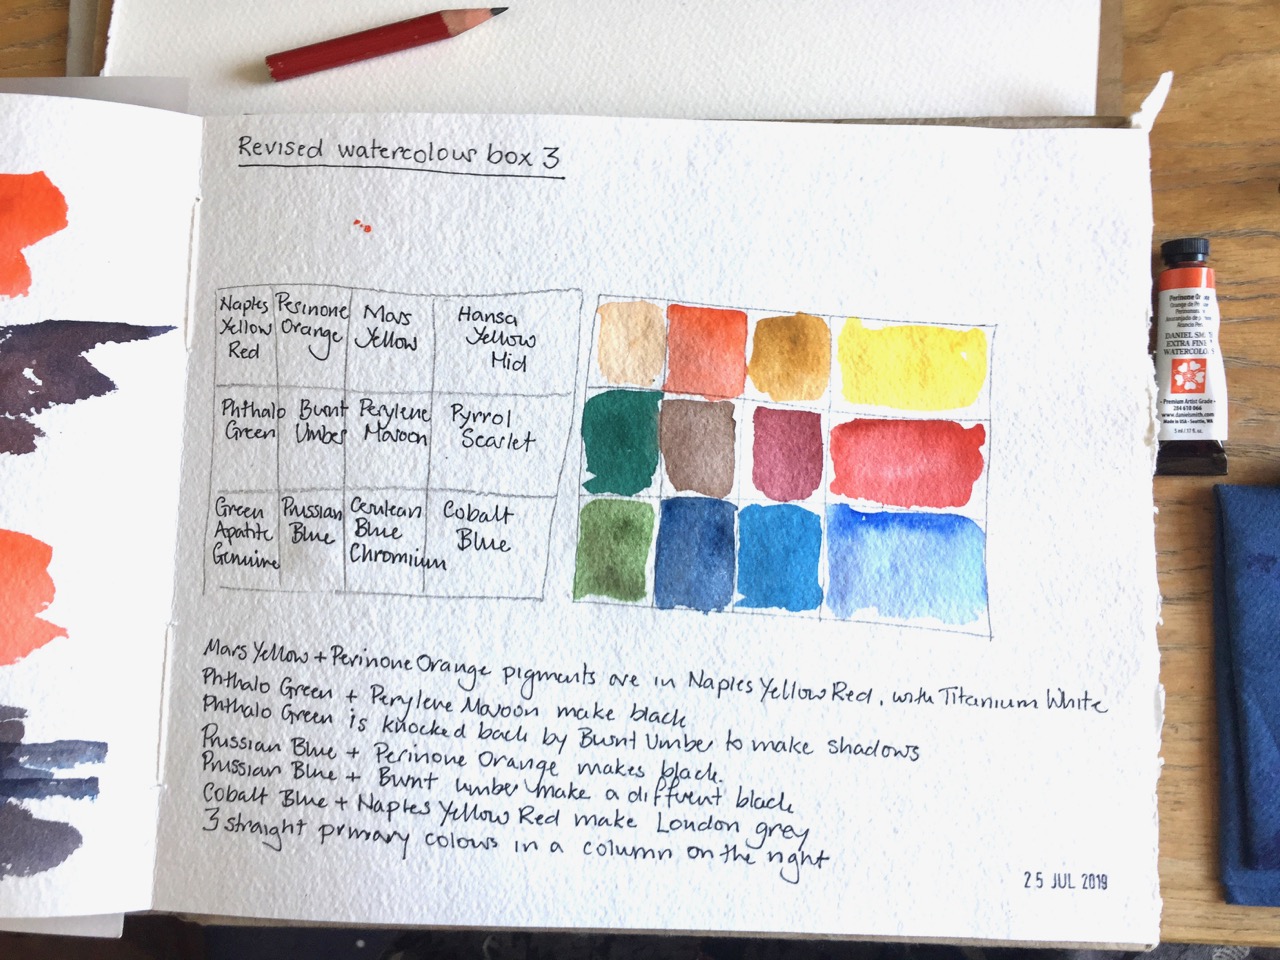 Revised watercolour box 3
Naples Yellow Red
Perinone Orange
Mars Yellow
Hansa Yellow Mid
Phthalo Green
Burnt Umber
Perylene Maroon
Pyrrol Scarlet
Green Apatite Genuine
Prussian Blue
Cerulean Blue Chromium
Cobalt Blue
Mars Yellow + Perinone Orange pigments are in Naples Yellow Red, with Titanium White
Phthalo Green + Perylene Maroon make black
Phthalo Green is knocked back by Burnt Umber to make shadows
Prussian Blue + Perinone Orange makes black.
Prussian Blue + Burnt umber make a diffrent black
Cobalt Blue + Naples Yellow Red make London grey
3 straight primary colours in a column on the right
25 JUL 2019
Perinone Or
DANIEL SM
EXTRA FINE
WATERCOLO
Premium Artist Grade
284 610 066
www.danielsmith.com
Made in USA - Seattle, WA